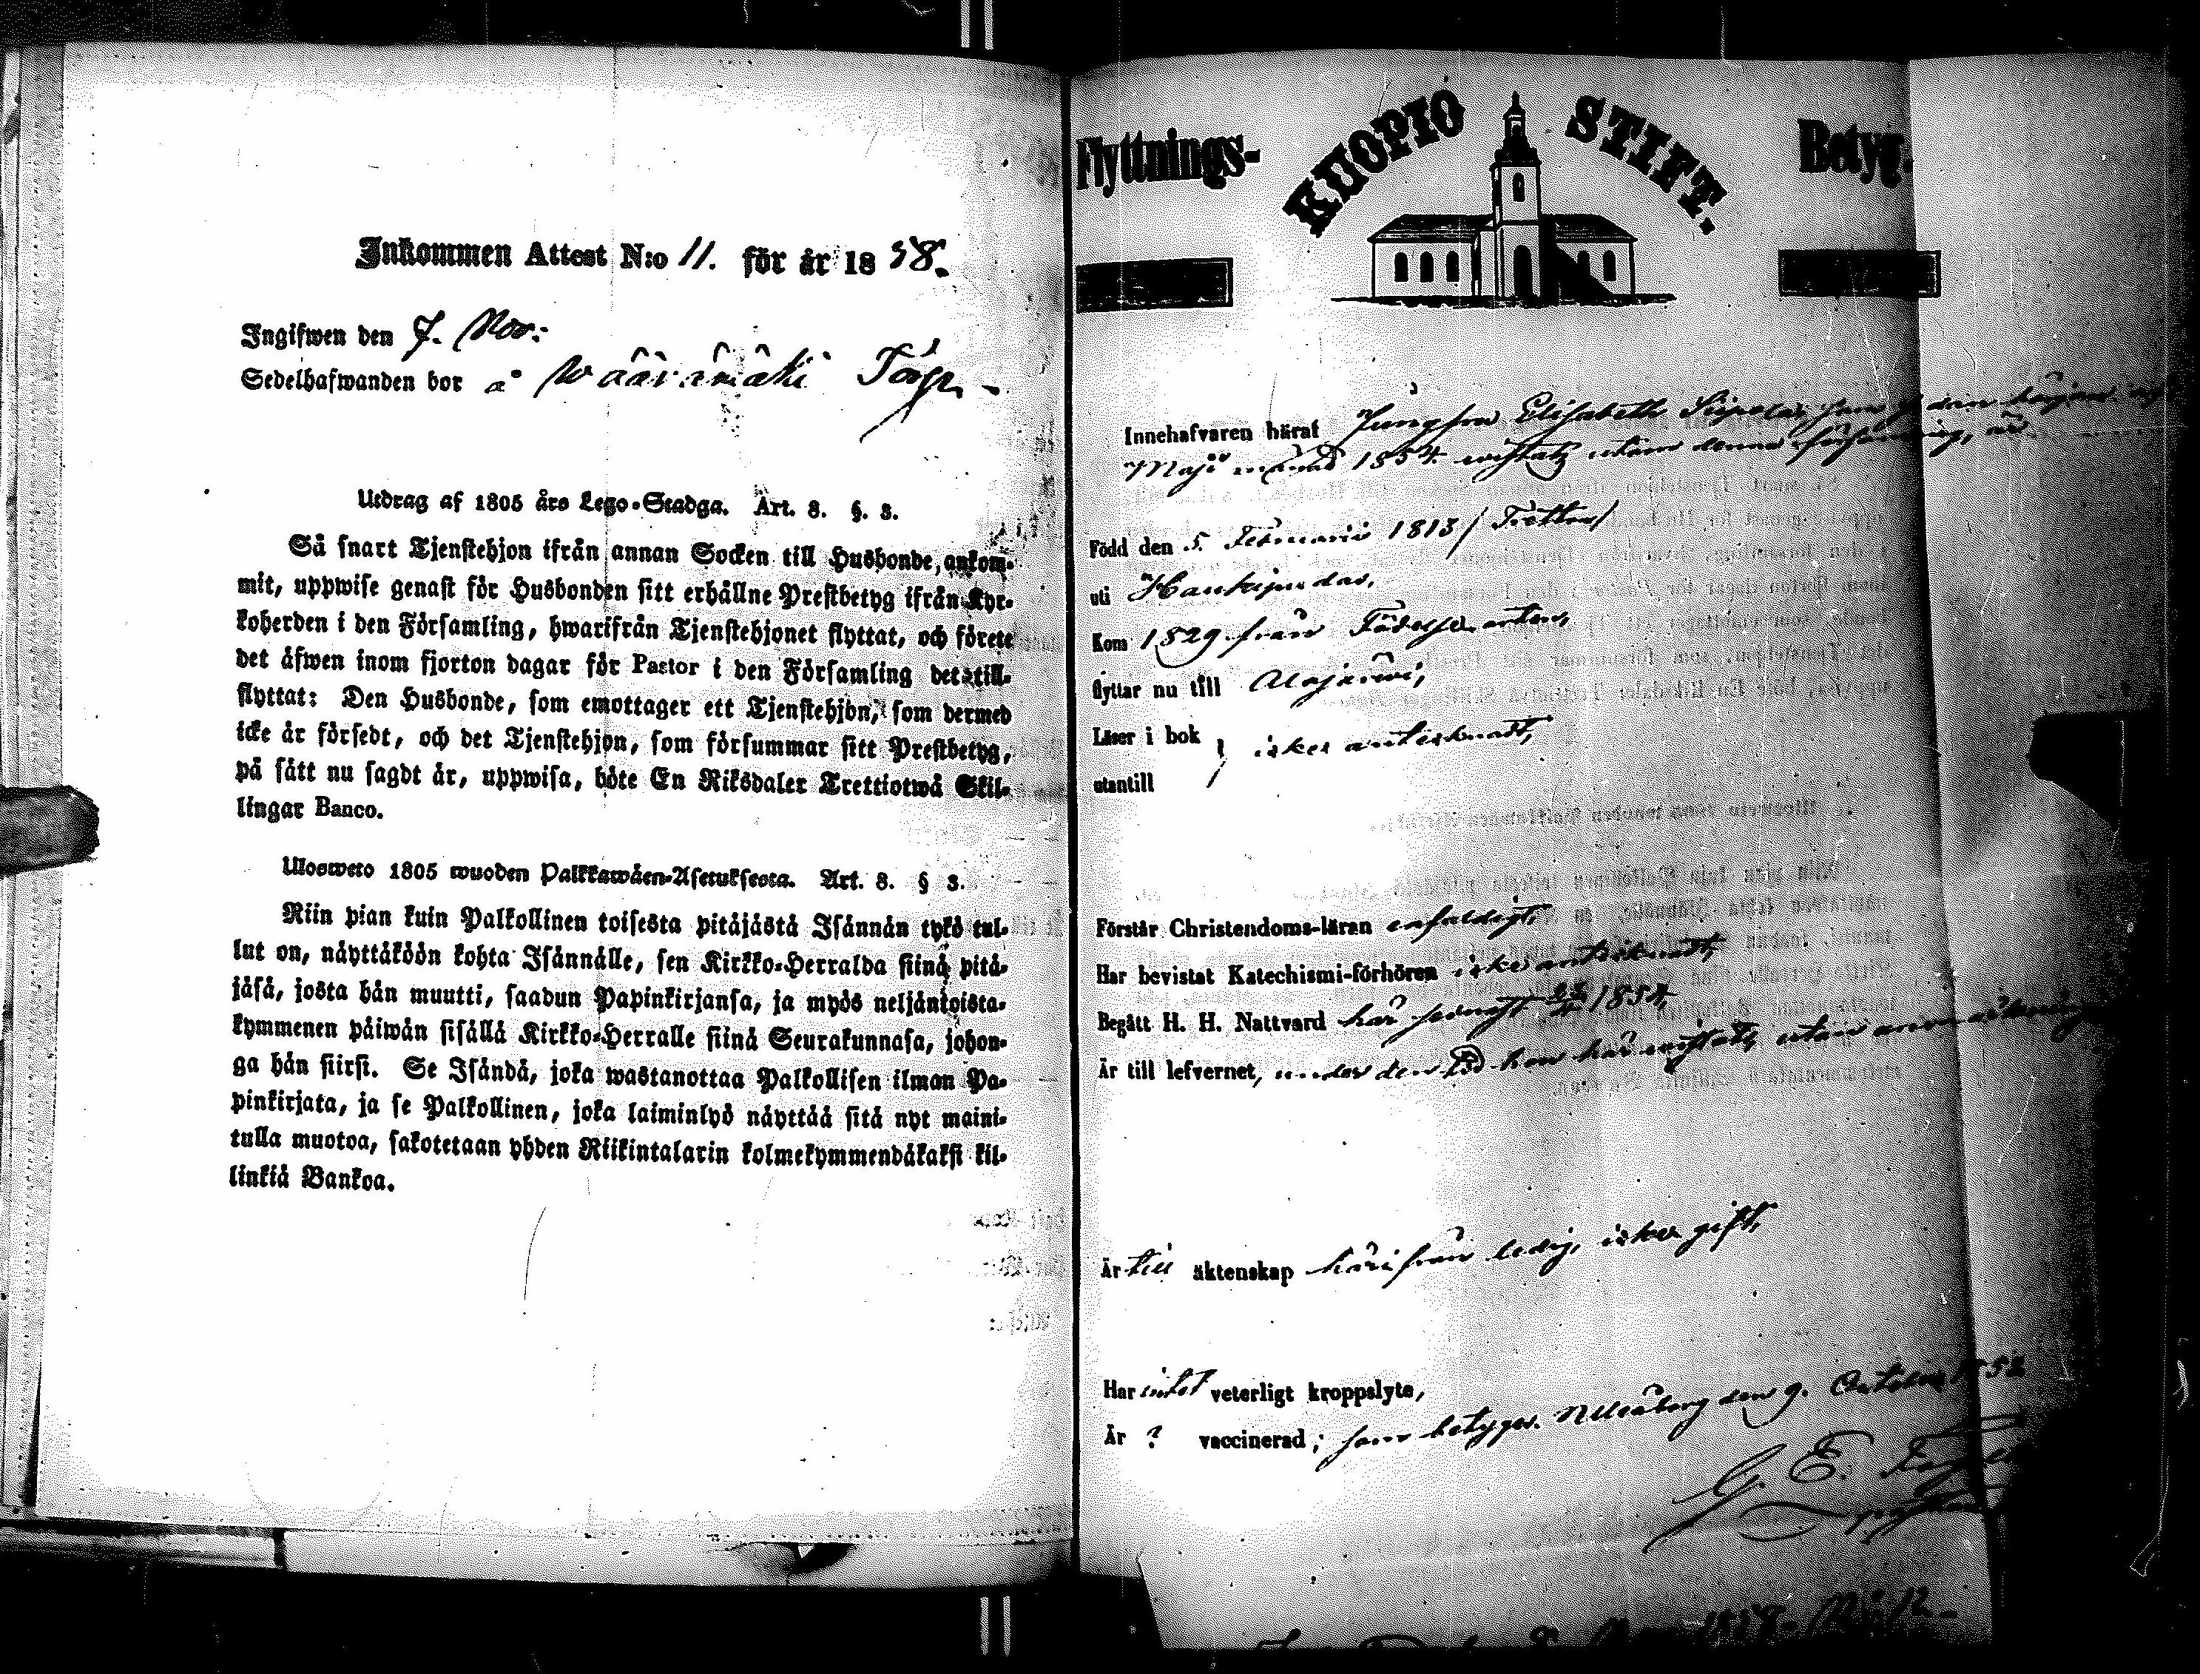 Inkommen Attest N:o 11. för år 1858.
Ingifwen den 7. Nov:
Sedelhafwanden bor å Wäärämäki Torp
Utdrag af 1805 års Lego-Stadga. Art. 8. §. 3.
Så snart Tjenstehjon ifrån annan Socken till Husbonde, ankom-
mit, uppwise genast för Husbonden sitt erhållne Prestbetyg ifrån Kyr-
koherden i den Församling, hwarifrån Tjenstehjonet flyttat, och förete
det äfwen inom fjorton dagar för Pastor i den Församling det till-
flyttat: Den Husbonde, som emottager ett Tjenstehjon, som dermed
icke är försedt, och det Tjenstehjon, som försummar sitt Prestbetyg,
på sätt nu sagdt är, uppwisa, böte En Riksdaler Trettiotwå Skil-
lingar Banco.
Ulosweto 1805 wuoden Palkkawäen-Asetuksesta. Art. 8. § 3.
Niin pian kuin Palkollinen toisesta pitäjästä Isännän tykö tul-
lut on, näyttäköön kohta Isännälle, sen Kirkko-Herralda siinä pitä-
jäsä, josta hän muutti, saadun Papinkirjansa, ja myös neljäntoista-
kymmenen päiwän sisällä Kirkko-Herralle siinä Seurakunnasa, johon-
ga hän siirsi. Se Isändä, joka wastanottaa Palkollisen ilman Pa-
pinkirjata, ja se Palkollinen, joka laiminlyö näyttää sitä nyt maini-
tulla muotoa, sakotetaan yhden Riikintalarin kolmekymmendäkaksi kil-
linkiä Bankoa.
Flyttnings- KUOPIO STIFT. Betyg.
Innehafvaren häraf Jungfru Elisabeth Sipola, som sedan början af
Maji månad 1854 vistats utom denna församling, är
Född den 5 Februarii 1813 / Tretton/
uti Haukipudas,
Kom 1829 från Födelseorten,
flyttar nu till Alajärwi,
Läser i bok } icke antecknadt,
utantill
Förstår Christendoms-läran enfaldigt,
Har bevistat Katechismi-förhören icke antecknadt,
Begått H. H. Nattvard här senast 23/4 1854,
Är till lefvernet, under den tid hon här vistats, utan anmärkning
Är till äktenskap härifrån ledig, icke gift,
Har intet veterligt kroppslyte,
Är ? vaccinerad; som betygar. Uleåborg den 9. October 185
G. E.
1858. N:o 12.